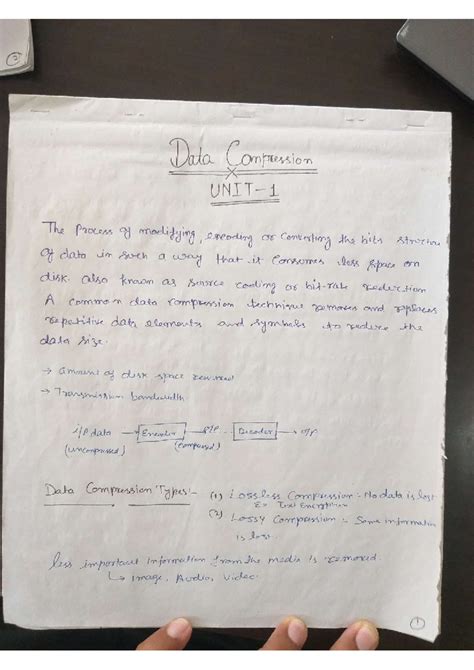 Data Compression
UNIT-1
The Process of modifying, encoding or Converting the bits structure
of data in such a way that it consumes less space on
disk. also known as source coding or bit-rate reduction
A common data compression technique removes and replaces
repetitive data elements and symbols to reduce the
data size.
→ amount of disk space
→ Transmission bandwidth
i/p data → Encoder → o/p → Decoder → o/p
(uncompressed) (compressed)
Data Compression Types:- (1) Lossless Compression - No data is lost
Ex- Text Encryption
(2) Lossy Compression :- Some information
is loss.
less important information from the media is removed.
↳ Image, Audio, Video.
1
2